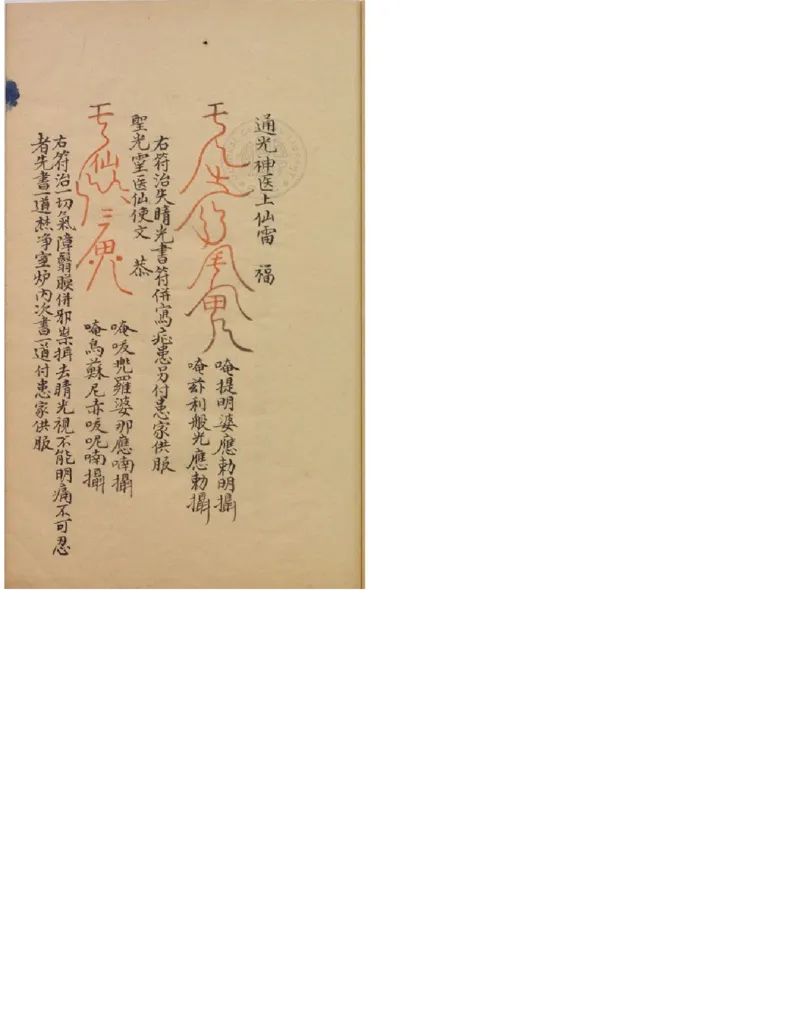 通光神医上仙雷　福
唵提明婆應勅明攝
唵𧙕利般光應勅攝
右符治失睛光書符併寫症患另付患家供服
聖光靈医仙使文　恭
唵吺兠羅婆那應喃攝
唵烏蘇尼赤吺呢喃攝
右符治一切氣障翳膜併邪祟揖去睛光視不能明痛不可忍
者先書一道焚净室炉內次書一道付患家供服